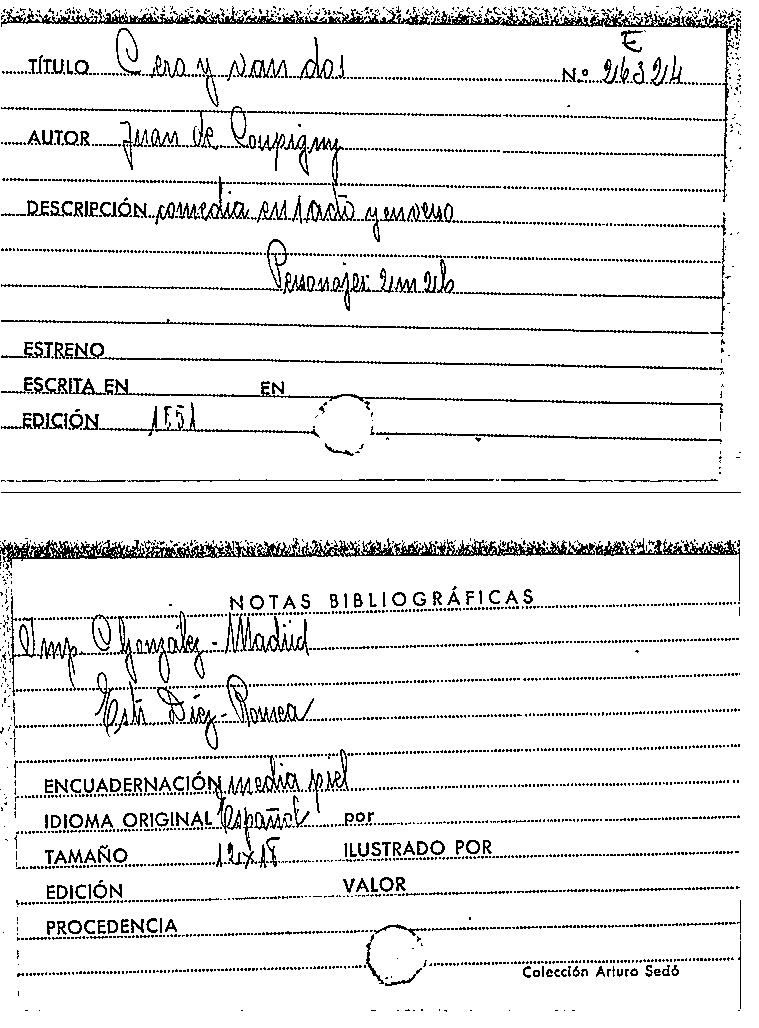 E
TÍTULO Cero y van dos Nº 26324
AUTOR Juan de Coupigny
DESCRIPCIÓN comedia en 1 acto y en verso
Personajes: 2m 2h
ESTRENO
ESCRITA EN EN
EDICIÓN 1851
NOTAS BIBLIOGRÁFICAS
Imp. González - Madrid
Estr Díez - Romea
ENCUADERNACIÓN media piel
IDIOMA ORIGINAL Español por
TAMAÑO 12x18 ILUSTRADO POR
EDICIÓN VALOR
PROCEDENCIA
Colección Arturo Sedó